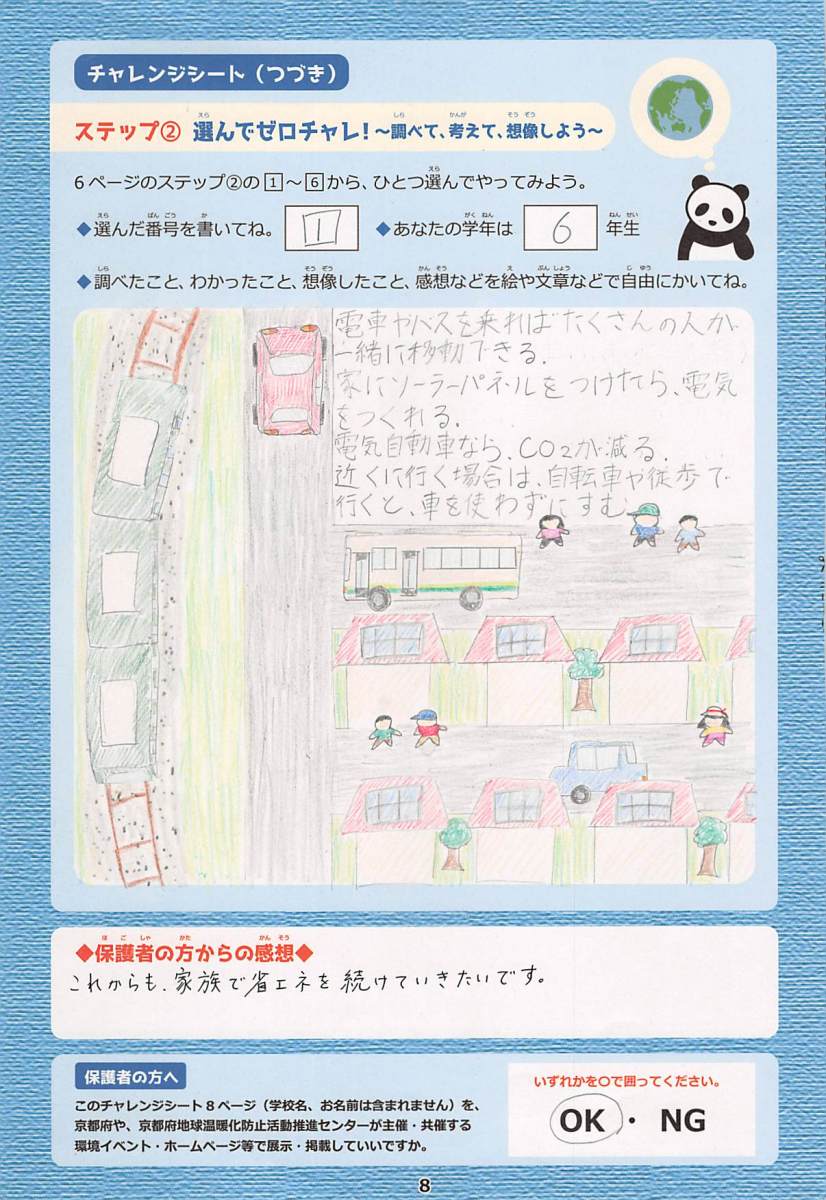 チャレンジシート（つづき）
ステップ② 選んでゼロチャレ！～調べて、考えて、想像しよう～
6ページのステップ②の1～6から、ひとつ選んでやってみよう。
◆選んだ番号を書いてね。 1 ◆あなたの学年は 6 年生
◆調べたこと、わかったこと、想像したこと、感想などを絵や文章などで自由にかいてね。
電車やバスを乗ればたくさんの人が
一緒に移動できる.
家にソーラーパネルをつけたら、電気
をつくれる.
電気自動車なら、CO2が減る.
近くに行く場合は、自転車や徒歩で
行くと、車を使わずにすむ.
◆保護者の方からの感想◆
これからも、家族で省エネを続けていきたいです。
保護者の方へ
このチャレンジシート8ページ（学校名、お名前は含まれません）を、
京都府や、京都府地球温暖化防止活動推進センターが主催・共催する
環境イベント・ホームページ等で展示・掲載していいですか。
いずれかを〇で囲ってください。
OK・NG
8